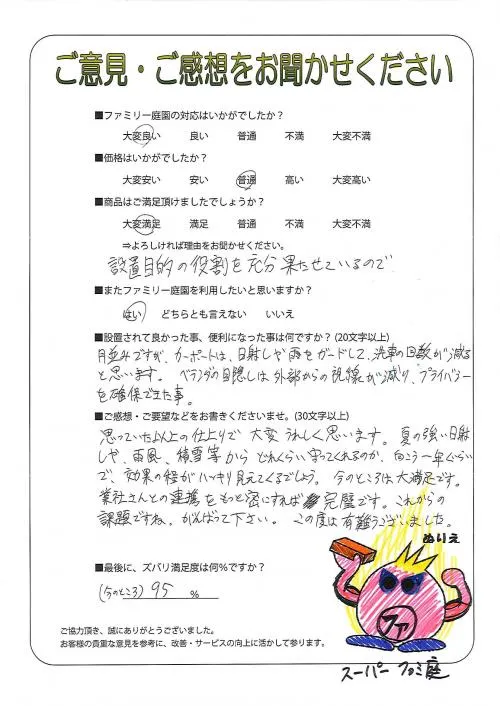 ご意見・ご感想をお聞かせください
■ファミリー庭園の対応はいかがでしたか？
大変良い　良い　普通　不満　大変不満
■価格はいかがでしたか？
大変安い　安い　普通　高い　大変高い
■商品はご満足頂けましたでしょうか？
大変満足　満足　普通　不満　大変不満
⇒よろしければ理由をお聞かせください。
設置目的の役割を充分果たせているので
■またファミリー庭園を利用したいと思いますか？
はい　どちらとも言えない　いいえ
■設置されて良かった事、便利になった事は何ですか？(20文字以上)
月並みですが、カーポートは、日射しや雨をガードして、洗車の回数が減る
と思います。ベランダの目隠しは外部からの視線が減り、プライバシー
を確保できた事。
■ご感想・ご要望などをお書きくださいませ。(30文字以上)
思っていた以上の仕上りで大変うれしく思います。夏の強い日射
しや、雨風、積雪等からどれくらい守ってくれるのか、向こう一年ぐらい
で、効果の程がハッキリ見えてくるでしょう。今のところは大満足です。
業社さんとの連携をもっと密にすれば完璧です。これからの
課題ですね。がんばって下さい。この度は有難うございました。
ぬりえ
■最後に、ズバリ満足度は何%ですか？
(今のところ) 95 %
ファ
ご協力頂き、誠にありがとうございました。
お客様の貴重な意見を参考に、改善・サービスの向上に活かして参ります。
スーパーファミ庭